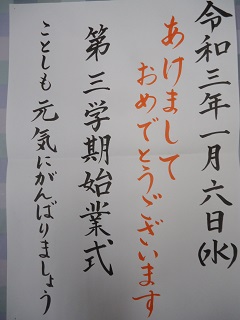 令和三年一月六日(水)
あけまして
おめでとうございます
第三学期始業式
ことしも元気にがんばりましょう